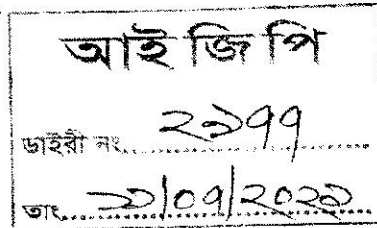 আই জি পি
ডাইরী নং ২১৭৭
তাং ১১/০৭/২০২১